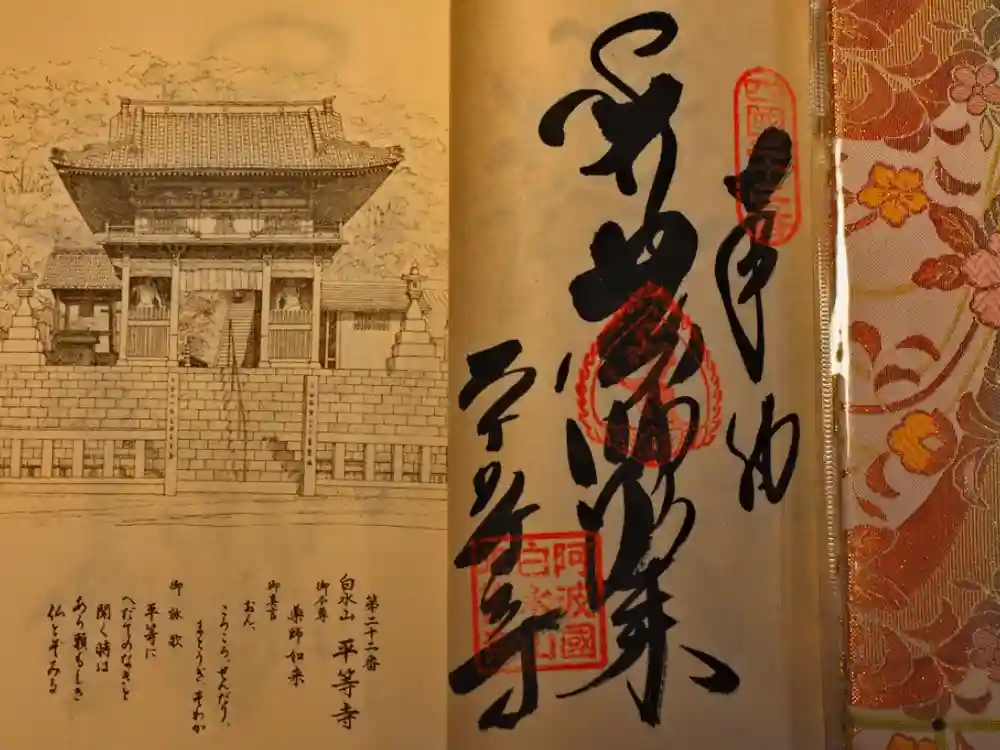 奉納
平等寺
阿波國
白水山
第二十二番
白水山 平等寺
御本尊
薬師如来
御真言
おん、
ころころ、せんだり、
まとうぎ、そわか
御詠歌
平等に
へだてのなきと
聞く時は
あら頼もしき
仏とぞみる